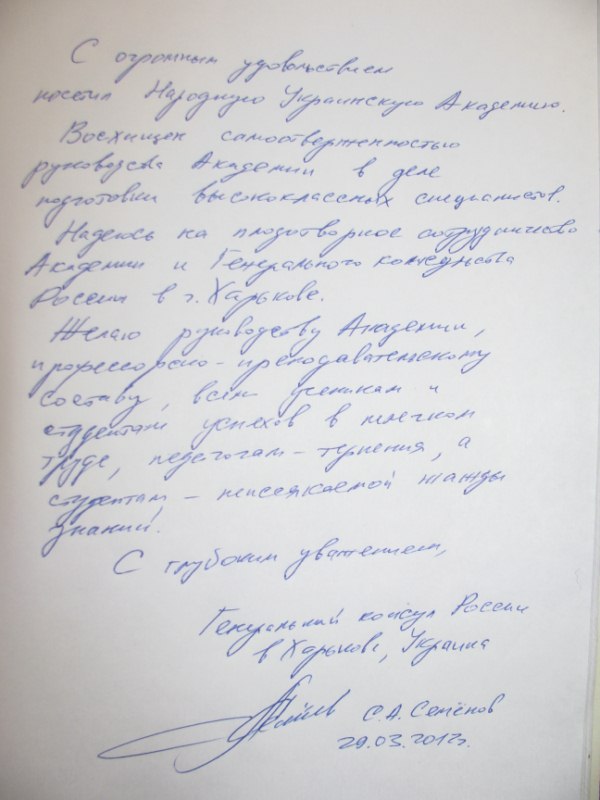 С огромным удовольствием
посетил Народную Украинскую Академию.
Восхищен самоотверженностью
руководства Академии в деле
подготовки высококлассных специалистов.
Надеюсь на плодотворное сотрудничество
Академии и Генерального консульства
России в г. Харькове.
Желаю руководству Академии,
профессорско-преподавательскому
составу, всем ученикам и
студентам успехов в нелегком
труде, педагогам – терпения, а
студентам – неиссякаемой жажды
знаний.
С глубоким уважением,
Генеральный консул России
в Харькове, Украина
С.А. Семёнов
29.03.2012г.